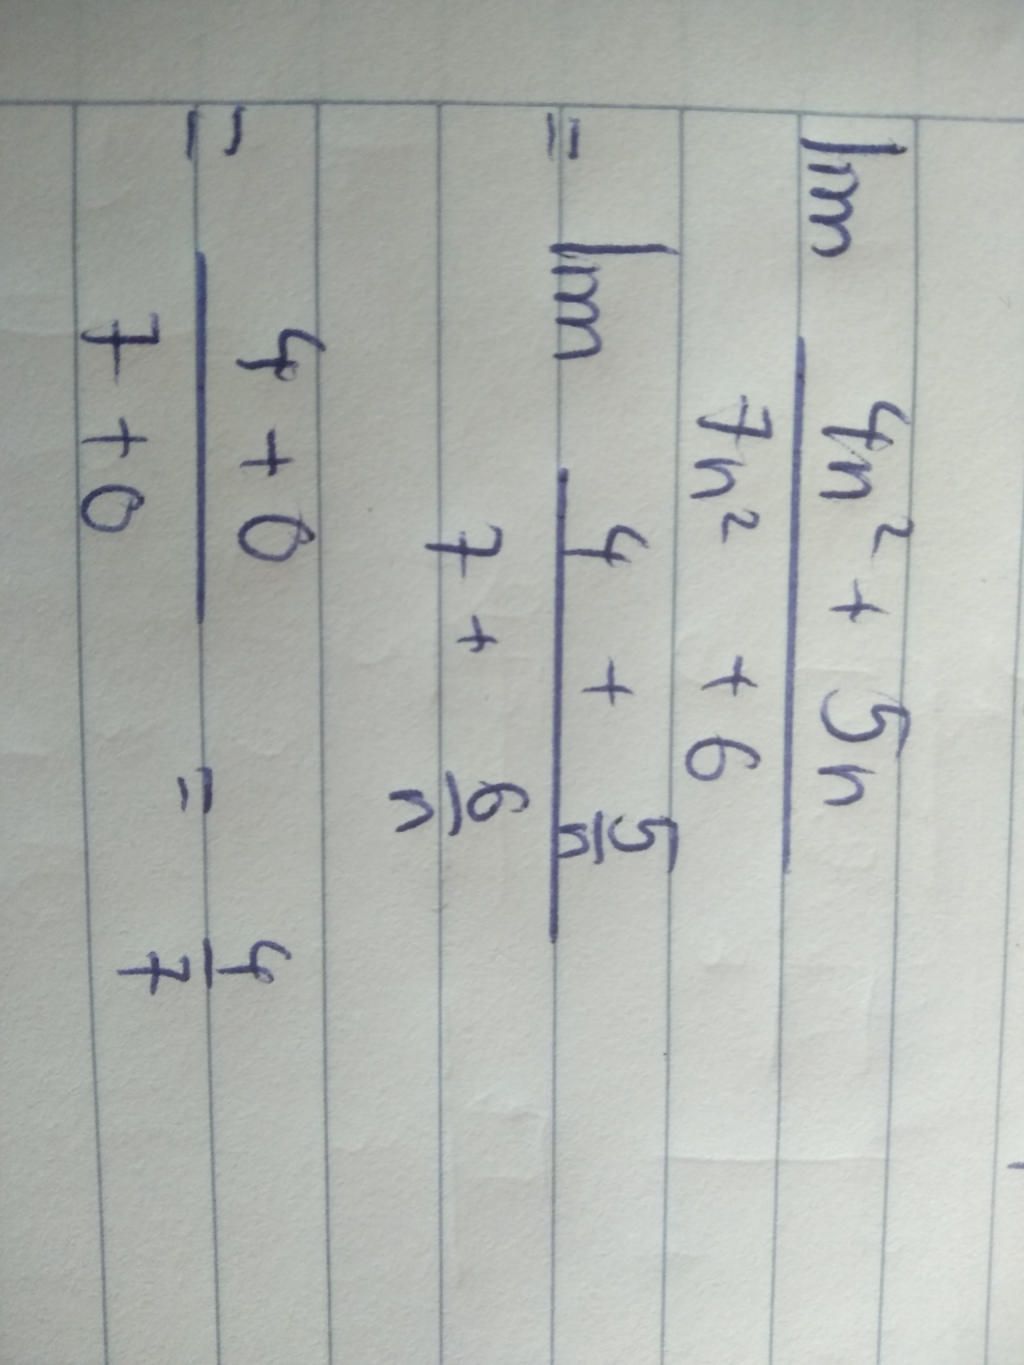 lim (4n² + 5n)/(7n² + 6)
= lim (4 + 5/n)/(7 + 6/n)
= (4 + 0)/(7 + 0) = 4/7